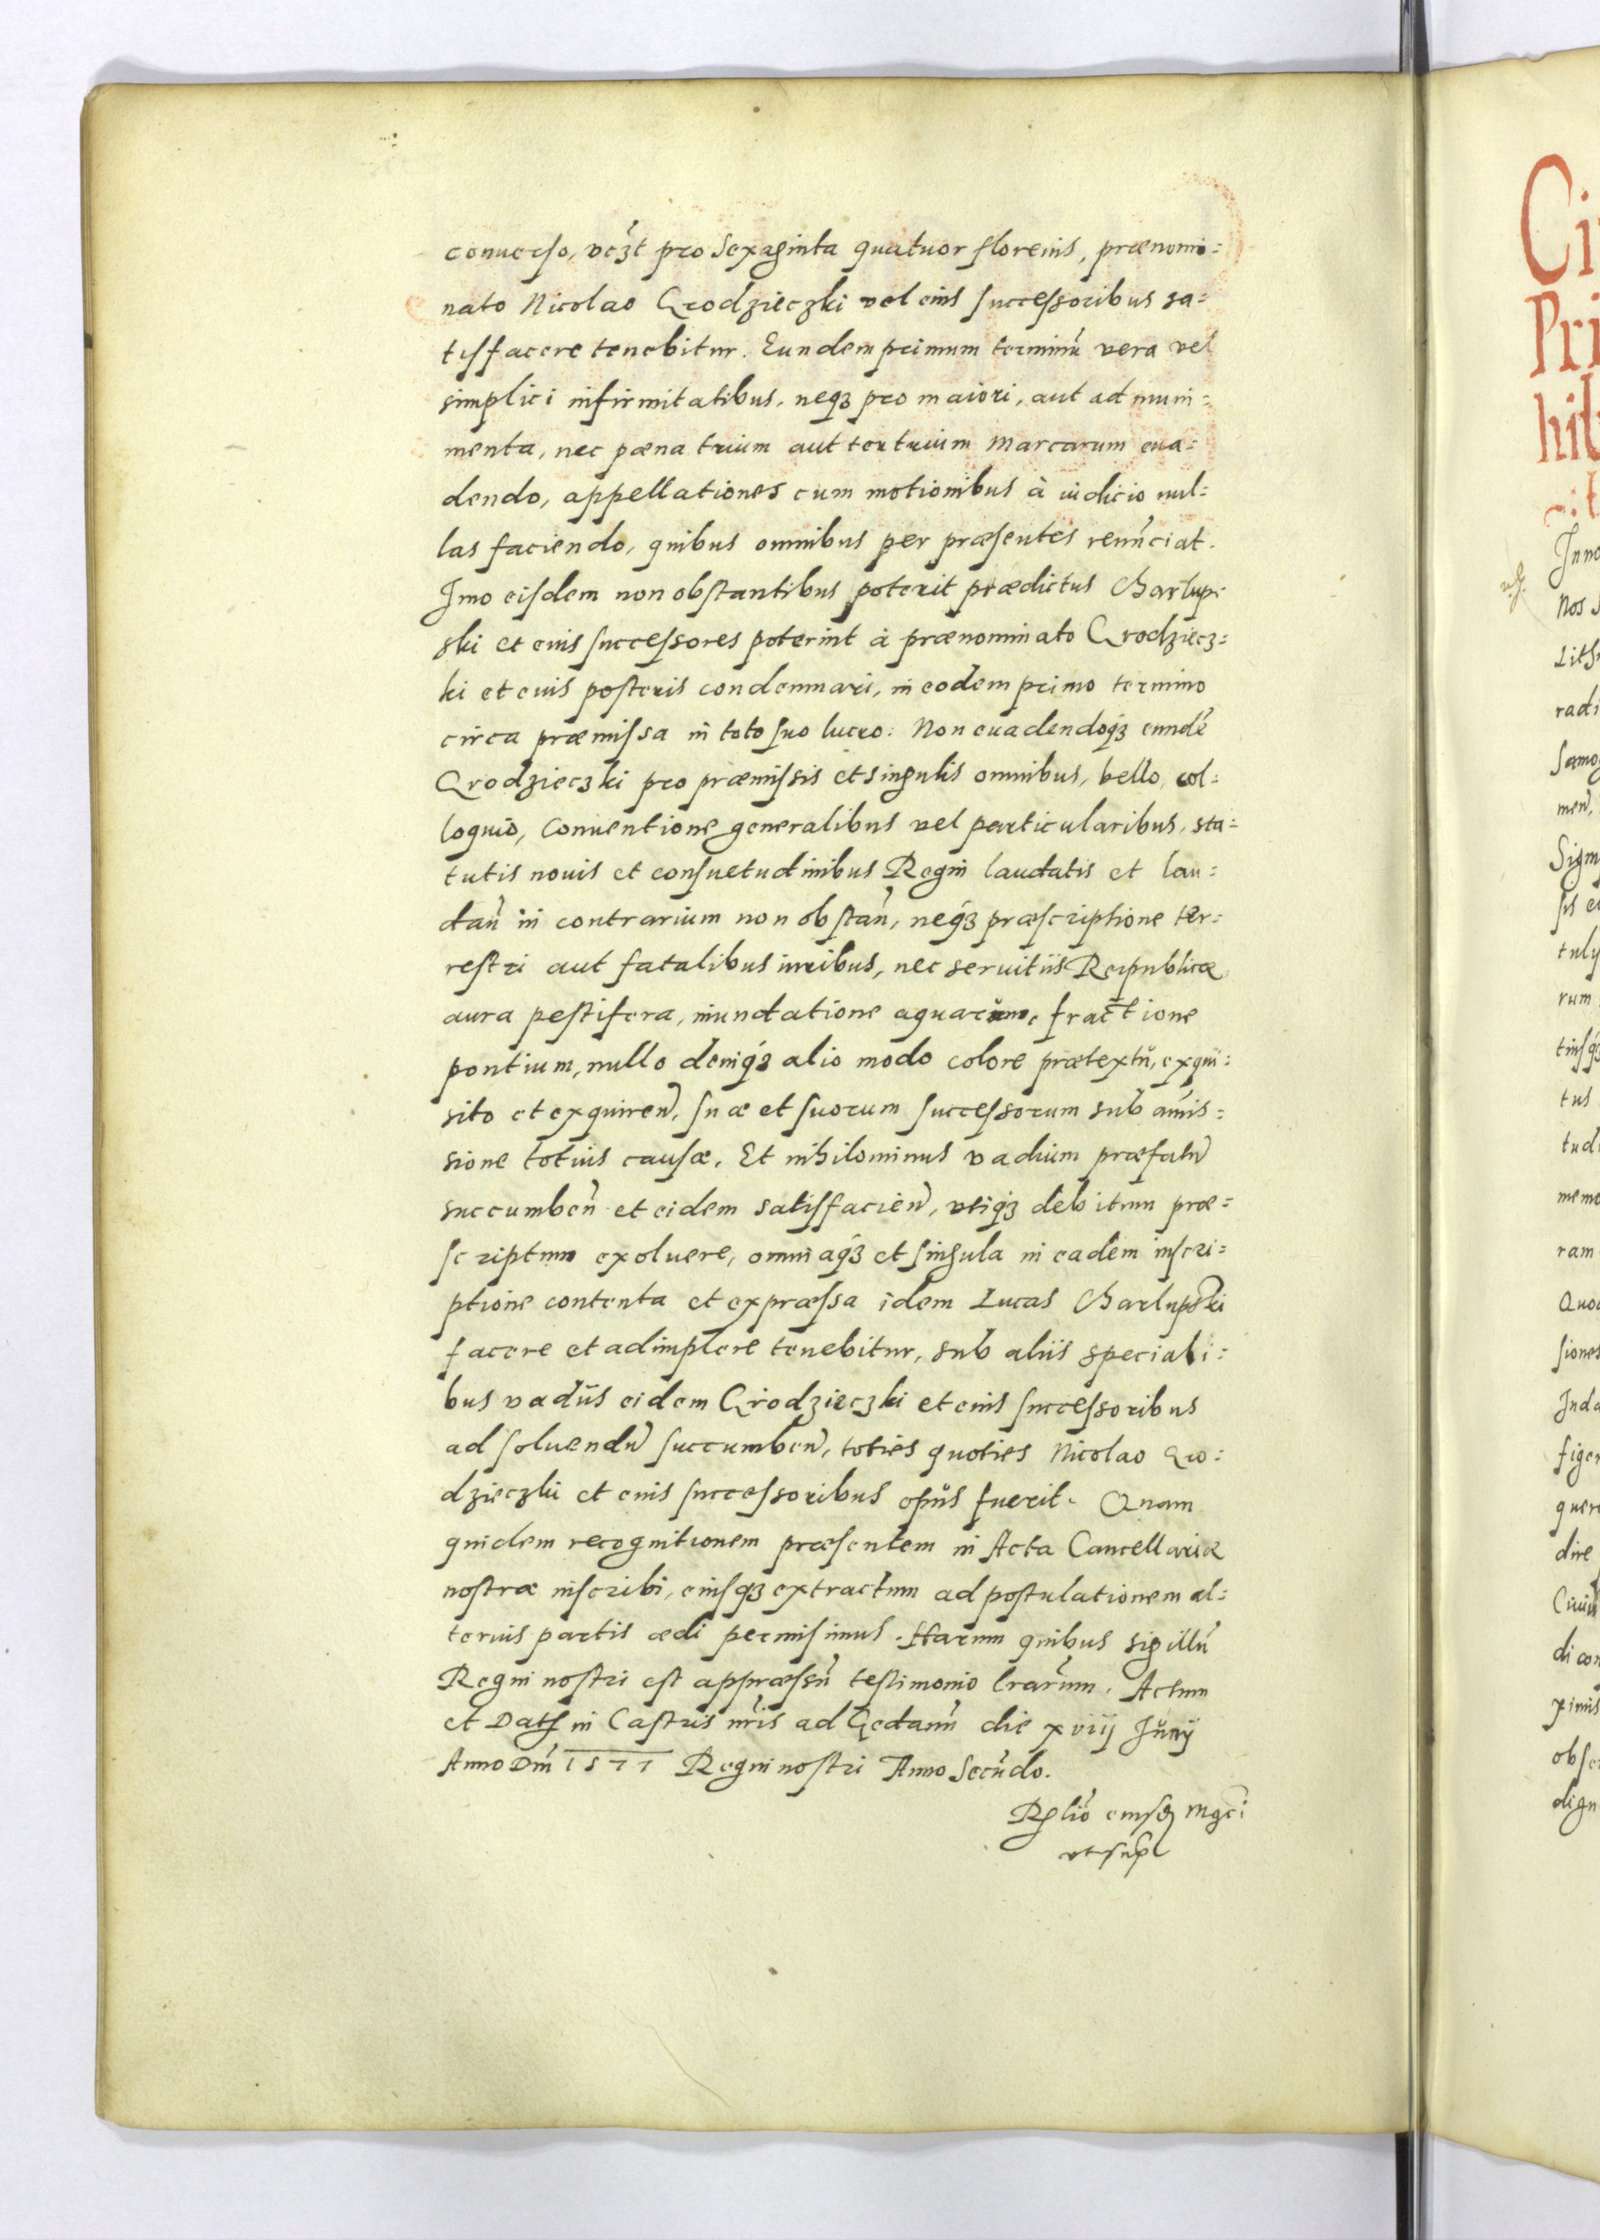 conuerso, vczt pro sexaginta quatuor florenis, prænomi=
nato Nicolao Grodzieczki vel eius successoribus sa=
tisfacere tenebitur. Eundem primum terminū vera vel
simplici infirmitatibus, neqз pro maiori, aut ad muni=
menta, nec pæna trium aut ter trium Marcarum eua=
dendo, appellationes cum motionibus à iudicio nul=
las faciendo, quibus omnibus per præsentes renūciat.
Imo eisdem non obstantibus poterit prædictus Charlup=
ski et eius successores poterint à prænominato Grodziecz=
ki et euis posteris condemnari, in eodem primo termino
circa præmissa in toto suo lucro: Non euadendoqз eundē
Grodzieczki pro præmissis et singulis omnibus, bello, col=
loquio, Conuentione generalibus vel particularibus, sta=
tutis nouis et consuetudinibus Regni laudatis et lau=
dan̄ in contrarium non obstan̄, neqз præscriptione ter=
restri aut fatalibus iuribus, nec seruitiis Reipublicæ
aura pestifera, inundatione aquarum, fractione
pontium, nullo deniqз alio modo colore prætextū, exqui=
sito et exquiren̄, suæ et suorum successorum sub amis=
sione totius causæ. Et nihilominus vadium præfatū
succumben̄ et eidem satisfacien̄, vtiqз debitum præ=
scriptum exoluere, omniaqз et singula in eadem inscri=
ptione contenta et expræssa idem Lucas Charlupski
facere et adimplere tenebitur, sub aliis speciali=
bus vadiis eidem Grodzieczki et eius successoribus
ad soluendū succumben̄, toties quoties Nicolao Gro=
dzieczki et euis successoribus opus fuerit. Quam
quidem recognitionem præsentem in Acta Cancellariæ
nostræ inscribi, eiusqз extractum ad postulationem al=
terius partis ædi permisimus. Harum quibus sigillū
Regni nostri est appræssū testimonio lrarum. Actum
et Dat in Castris nris ad Gedanū die xviij Junij
Anno Dni 1577 Regni nostri Anno Secūdo.
Rlio eiusd Mgci
vt supra
Ci
Pri
hib
Inno
Nos
Lith
radi
Samog
men̄,
Sigm
sis
tuly
rum
tinsqз
tus
tudi
memo
ram
Quod
siones
Inda
figer
quere
dire
Ciuit
di con
ximis
obser
dign